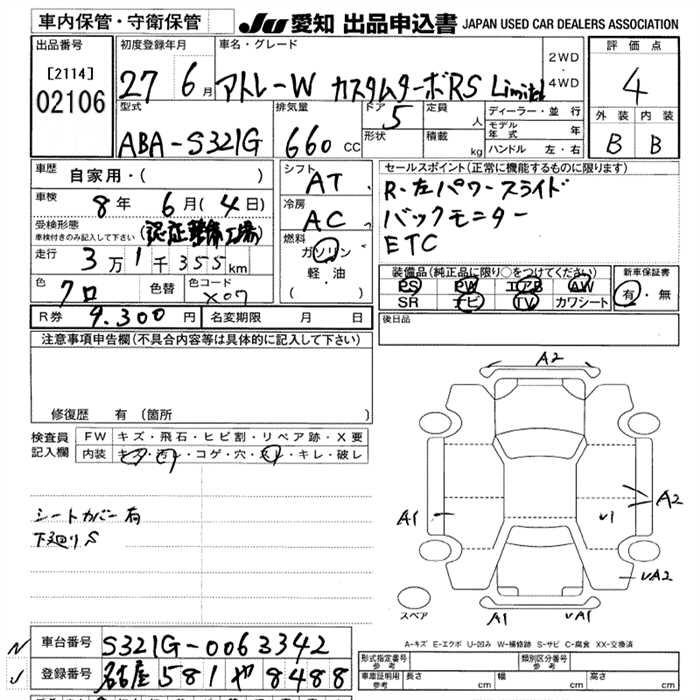 車内保管・守衛保管
JU 愛知 出品申込書 JAPAN USED CAR DEALERS ASSOCIATION
出品番号
[2114]
02106
初度登録年月
27 6月
車名・グレード
アトレーW カスタムターボRS Limited
2WD
・
4WD
評価点
4
外装 内装
B B
型式
ABA-S321G
排気量
660 CC
ドア
5
形状
定員
人
積載
kg
ディーラー・並行
モデル年式 年
ハンドル 左・右
車歴
自家用・( )
車検
8年 6月(4日)
受検形態
車検付きのみ記入して下さい
(認証整備工場)
走行
3万1千355km
色
クロ
色替
色コード
X07
シフト
AT
冷房
AC
燃料
ガソリン
軽・油
( )
セールスポイント(正常に機能するものに限ります)
R・左パワースライド
バックモニター
ETC
装備品(純正品に限り○をつけてください)
PS PW エアB AW
SR ナビ TV カワシート
新車保証書
有・無
後日品
R券 9.300円
名変期限 月 日
注意事項申告欄(不具合内容等は具体的に記入して下さい)
修復歴 有(箇所 )
検査員
記入欄
FW キズ・飛石・ヒビ割・リペア跡・X要
内装 キズ・汚レ・コゲ・穴・スレ・キレ・破レ
シートカバー有
下廻りS
A2
A1
A2
U1
UA2
A1
UA1
スペア
A-キズ E-エクボ U-凹み W-補修跡 S-サビ C-腐食 XX-交換済
N 車台番号 S321G-0063342
J 登録番号 名古屋 581 や 8488
形式指定番号
参考
類別区分番号
参考
車庫証明用
参考
長さ cm
幅 cm
高さ cm